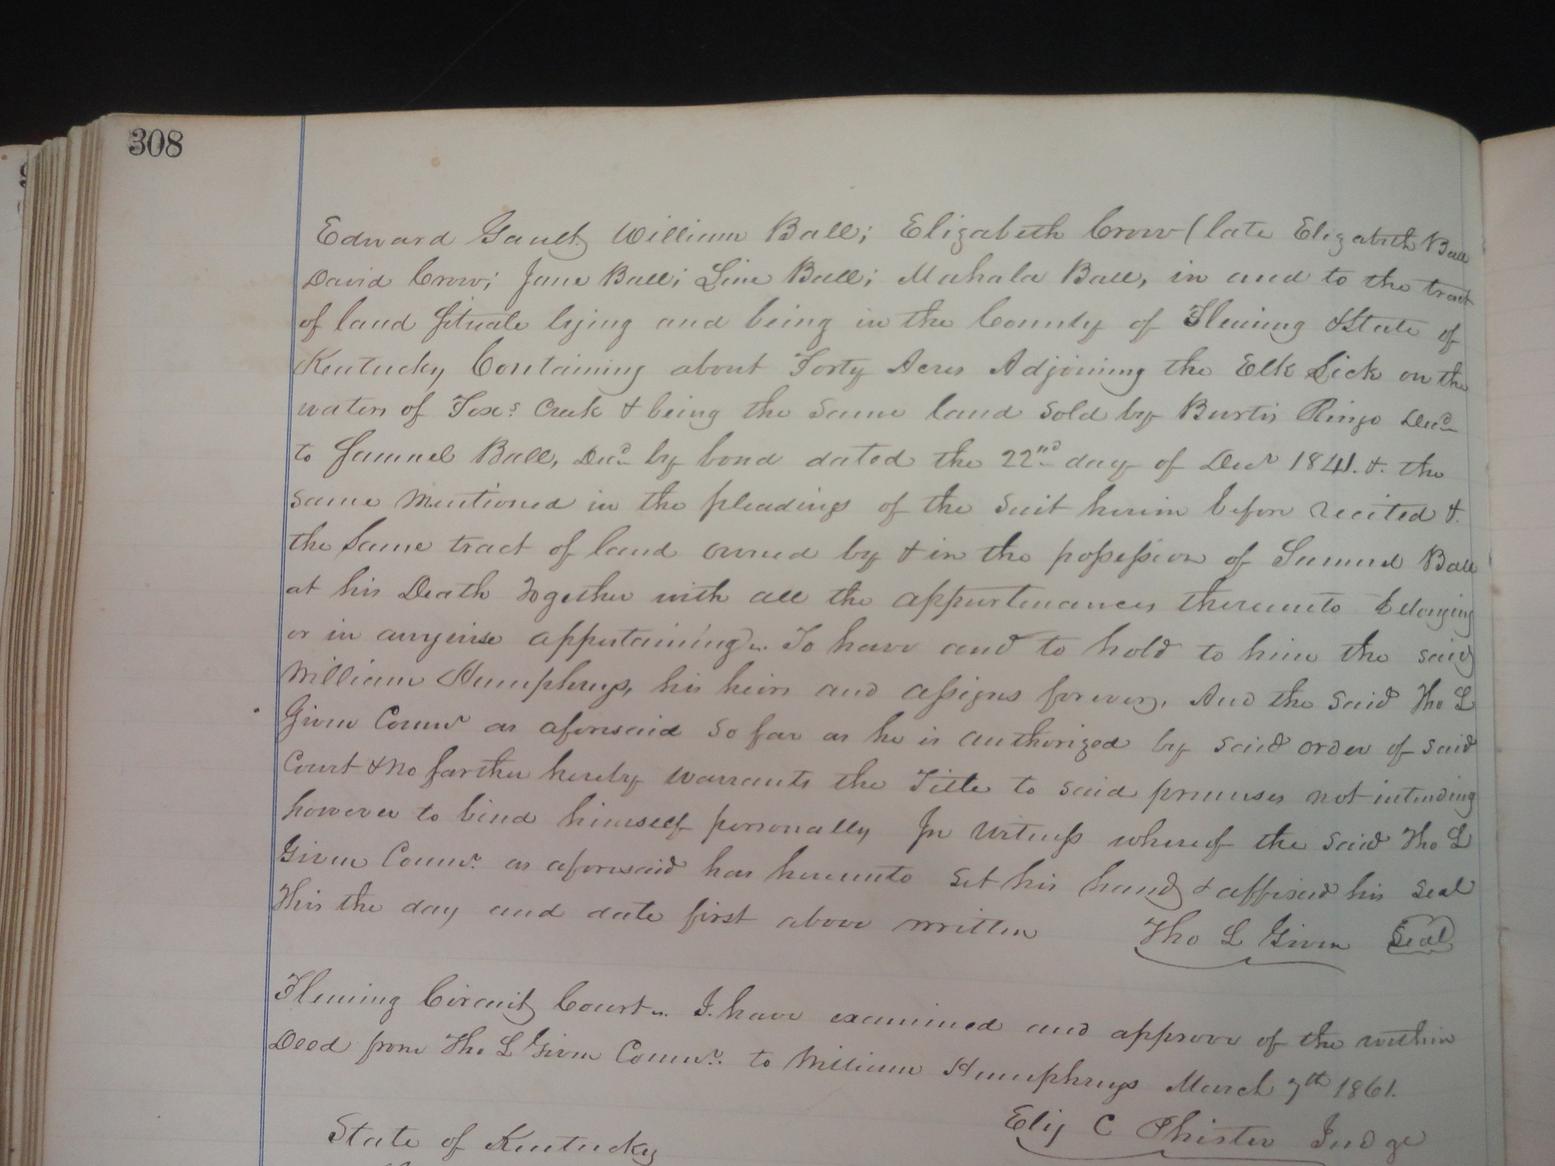 308
Edward Gault William Ball; Elizabeth Crow (late Elizabeth Ball
David Crow; Jane Ball; Line Ball; Mahala Ball, in and to the tract
of land situate lying and being in the County of Fleming & State of
Kentucky Containing about Forty Acres Adjoining the Elk Lick on the
waters of Foxs Creek & being the same land sold by Burtis Ringo Decd
to Samuel Ball, Decd by bond dated the 22nd day of Decr 1841. & the
same mentioned in the pleadings of the suit herein before recited &
the same tract of land owned by & in the possession of Samuel Ball
at his Death Together with all the appurtenances thereunto belonging
or in anywise appertaining. To have and to hold to him the said
William Humphrys, his heirs and assigns forever, And the said Tho L
Given Commr as aforesaid so far as he is authorized by said order of said
Court & no farther hereby warrants the Title to said premises not intending
however to bind himself personally In Witness whereof the said Tho L
Given Commr. as aforesaid has hereunto set his hand & affixed his seal
This the day and date first above written Tho L Given Seal
Fleming Circuit Court. I have examined and approve of the within
Deed from Tho L Given Commr. to William Humphrys March 7th 1861.
Elij C Phister Judge
State of Kentucky